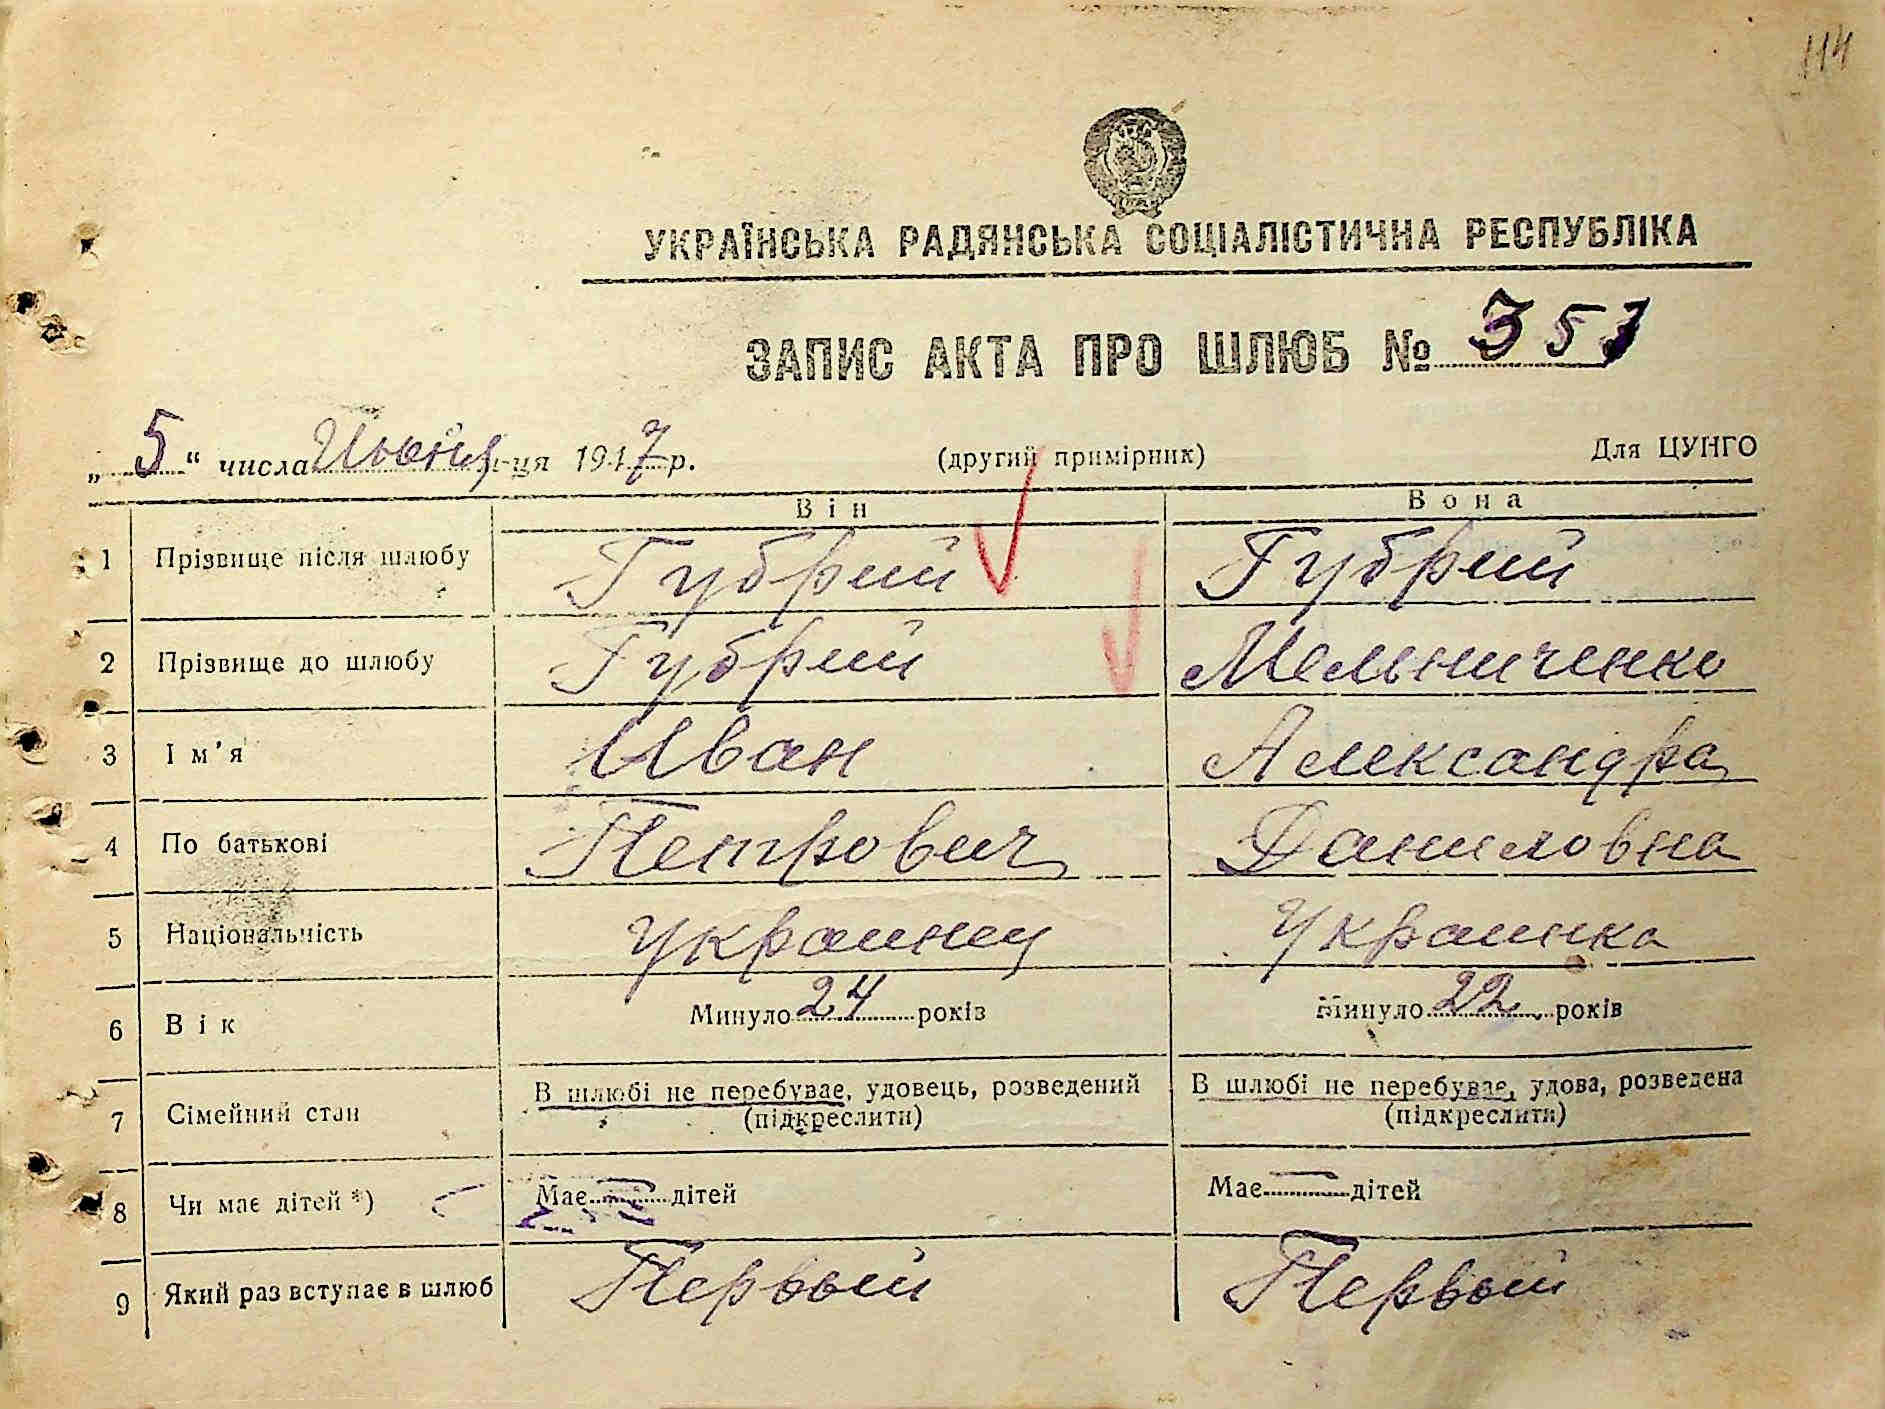 114
УКРАЇНСЬКА РАДЯНСЬКА СОЦІАЛІСТИЧНА РЕСПУБЛІКА
ЗАПИС АКТА ПРО ШЛЮБ № 351
„ 5 “ числа Июня м-ця 1947 р. (другий примірник) Для ЦУНГО
Він Вона
1 Прізвище після шлюбу Губрий Губрий
2 Прізвище до шлюбу Губрий Мельниченко
3 Ім'я Иван Александра
4 По батькові Петрович Даниловна
5 Національність Украинец Украинка
6 Вік Минуло 24 років Минуло 22 років
7 Сімейний стан В шлюбі не перебуває, удовець, розведений (підкреслити) В шлюбі не перебуває, удова, розведена (підкреслити)
8 Чи має дітей *) Має — дітей Має — дітей
9 Який раз вступає в шлюб Первый Первый